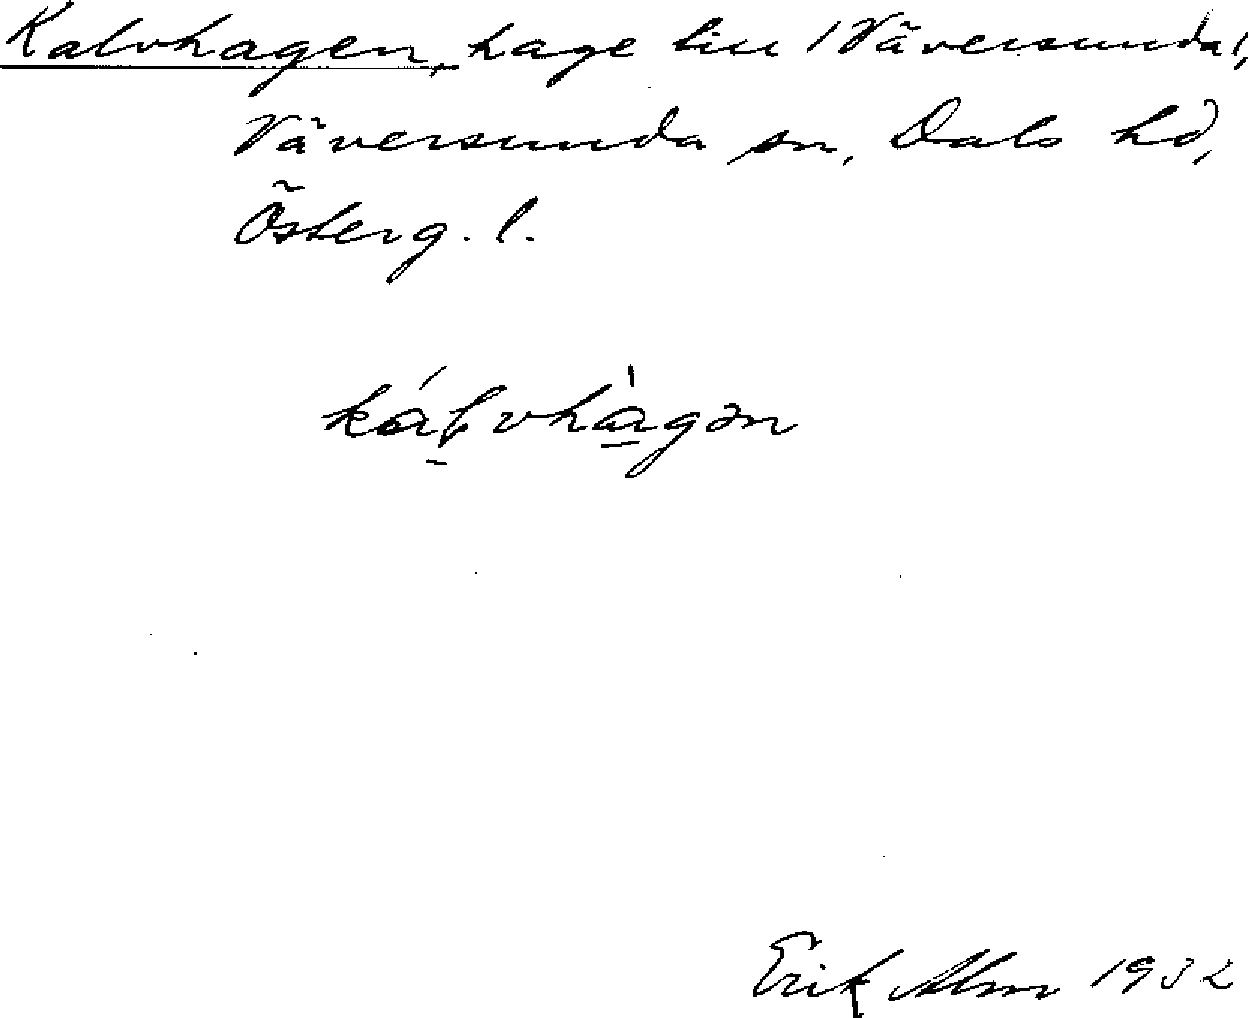 Kalvhagen, hage till /Väversunda/,
Väversunda sn, Dals hd,
Österg. l.
kálvhàgən
Erik Alm 1932